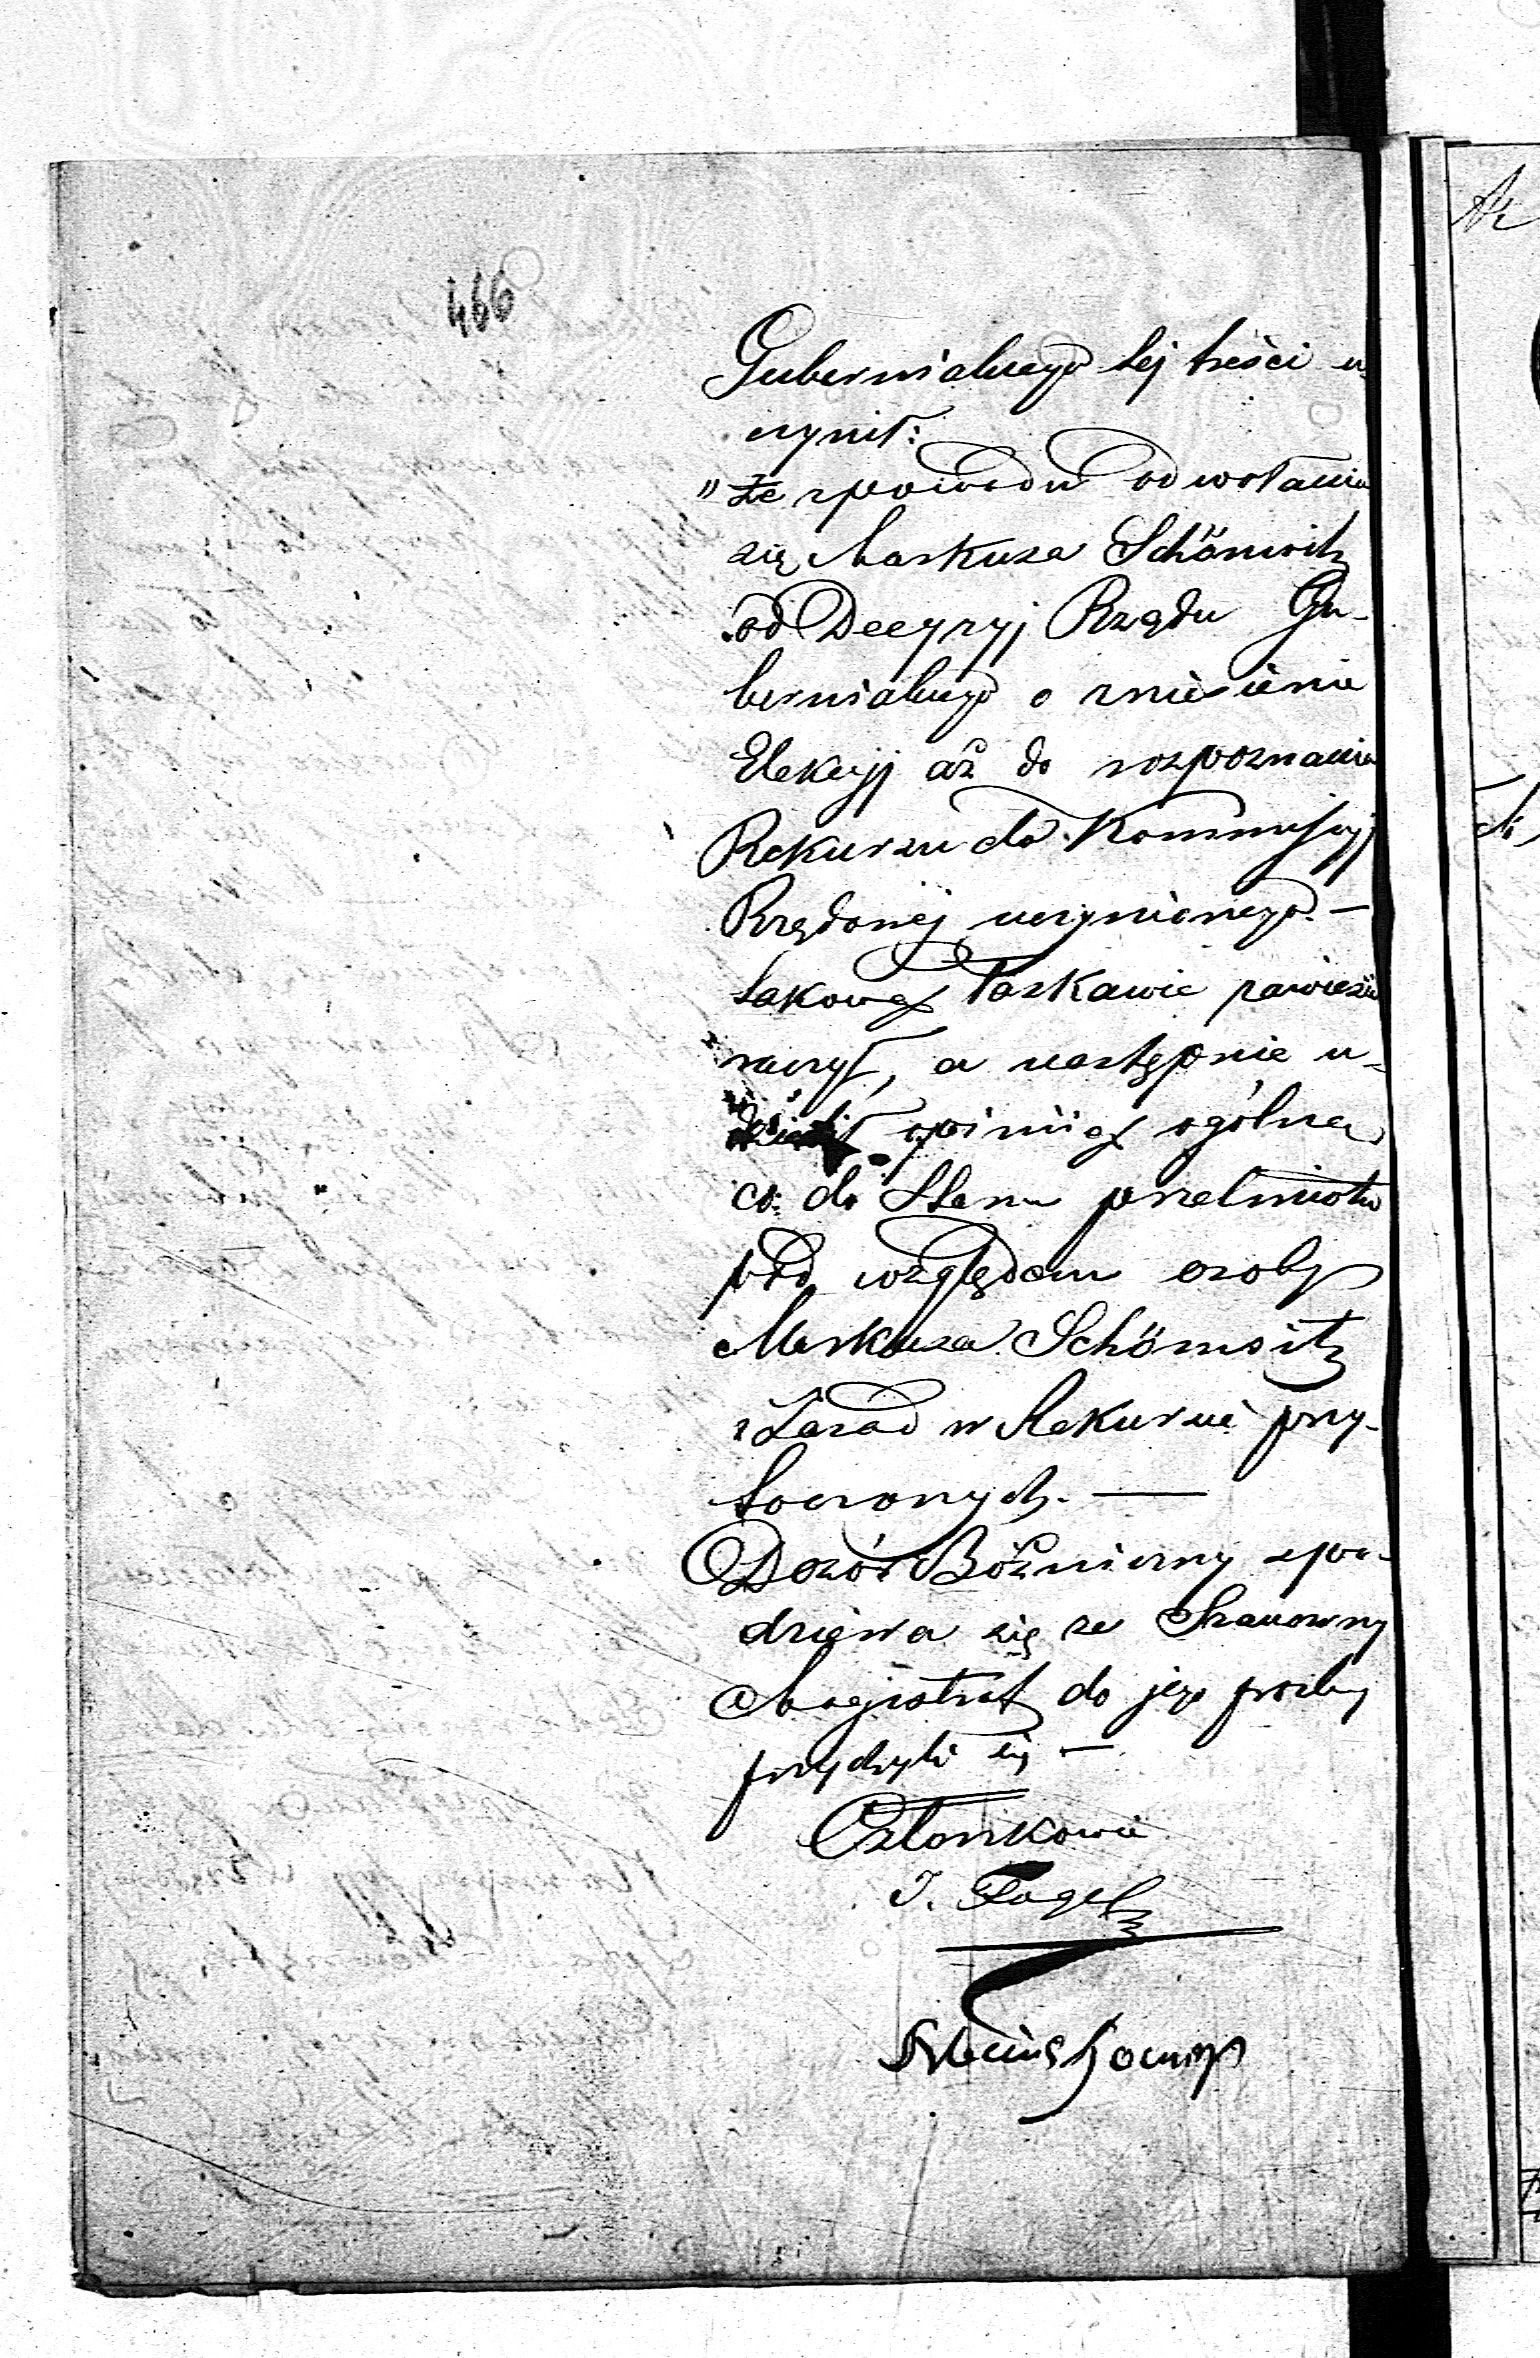 466
Gubernialnego tej treści u-
czynił:
"że zpowodu odwołania
się Markusa Schönwitz
od Decyzyj Rządu Gu-
bernialnego o zniesienie
Elekcyj aż do rozpoznania
Rekurzu do Kommissyj
Rządowéj uczynionego. —
takową łaskawie zawiesić
raczył, a następnie u-
dzielił opiniią ogólną
co do Stanu przedmiotu
pod względem osoby
Markusa Schönwitz
i Zasad w Rekursie przy-
toczonych. —
Dozór Bóżniczny spo-
dziewa się ze Szanowny
Magistrat do jego prozby
przychyli się —
Członkowie
J. Fogel